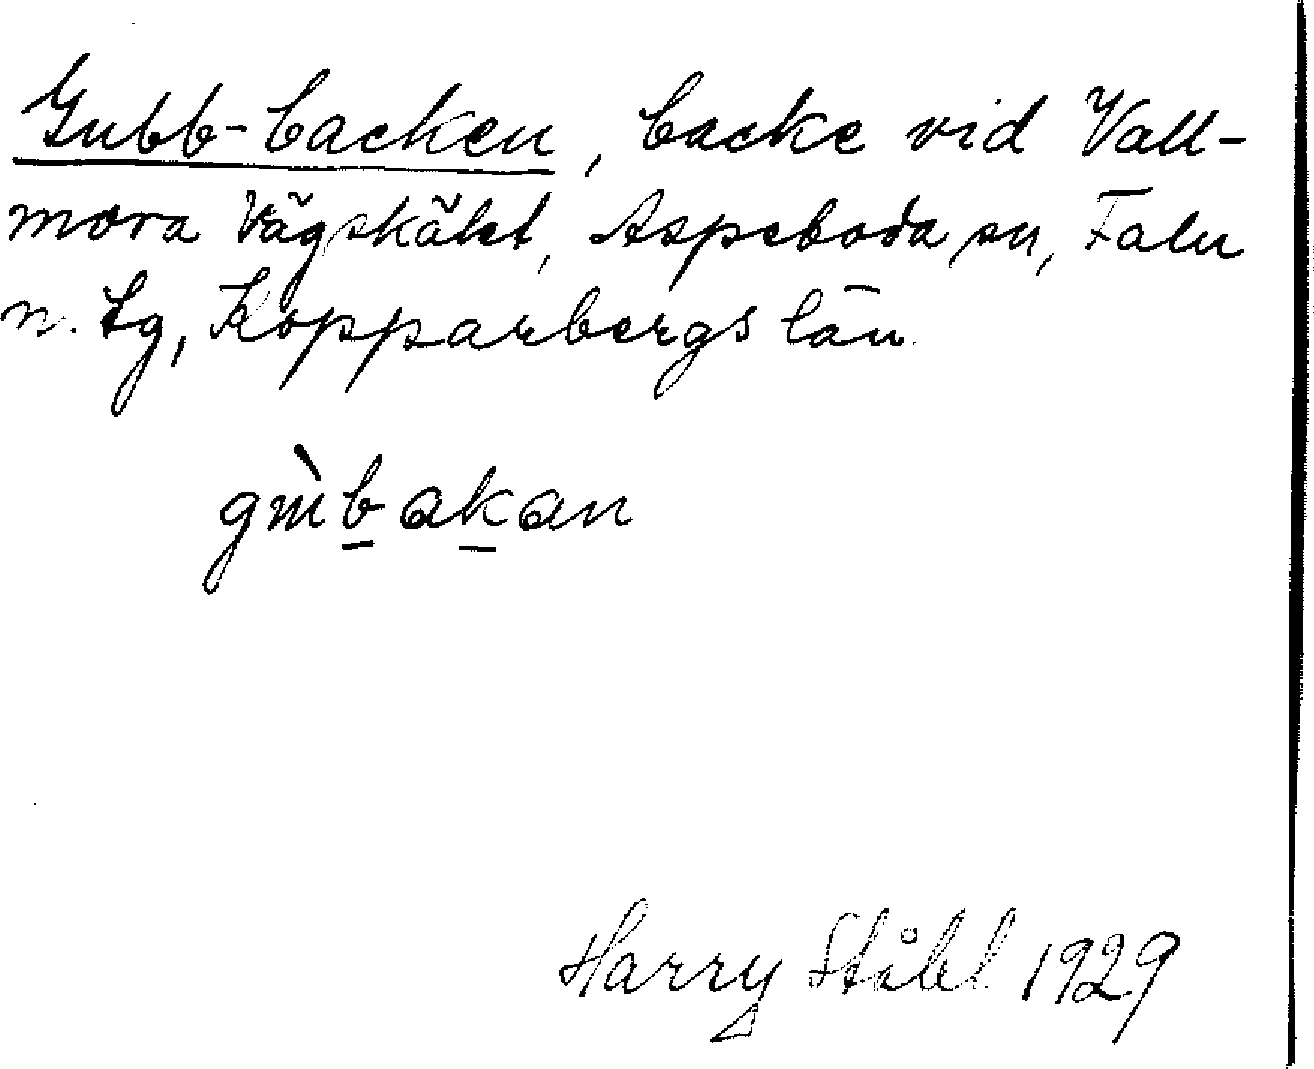 Gubb-backen, backe vid Vall-
mora Vägskäkt, Aspeboda sn, Falu
n. tg, Kopparbergs län.
Harry Ståhl 1929